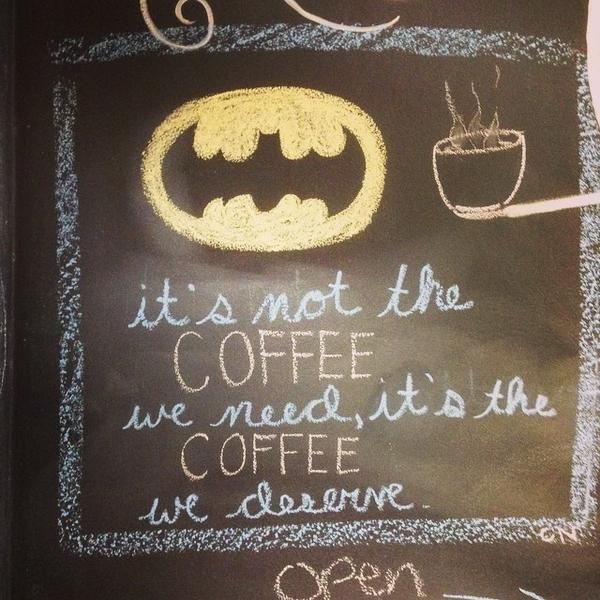 it's not the
COFFEE
we need, it's the
COFFEE
we deserve.
CN
open